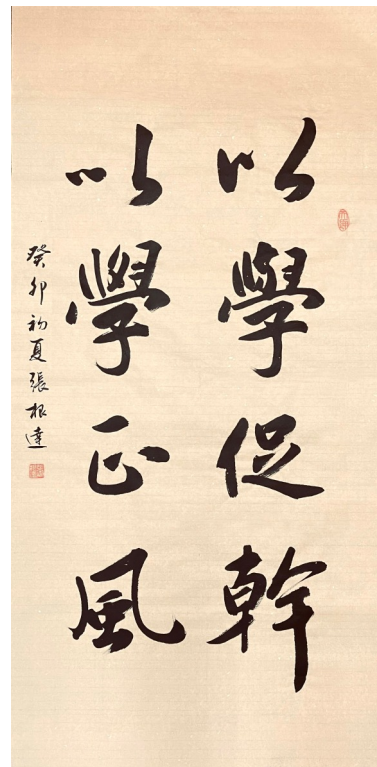 以學促幹
以學正風
癸卯初夏張根達